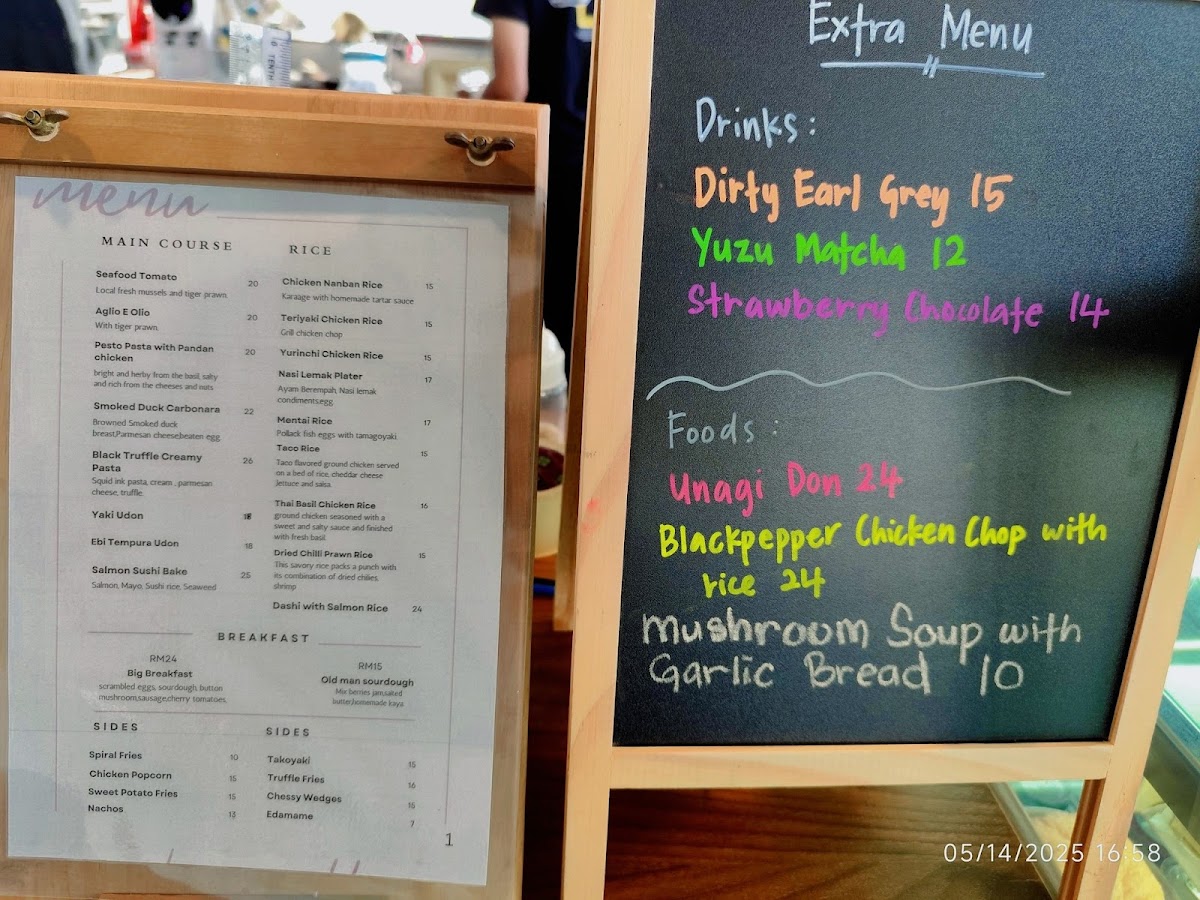 menu
MAIN COURSE
Seafood Tomato 20
Local fresh mussels and tiger prawn.
Aglio E Olio 20
With tiger prawn.
Pesto Pasta with Pandan
chicken 20
bright and herby from the basil, salty
and rich from the cheeses and nuts
Smoked Duck Carbonara 22
Browned Smoked duck
breast,Parmesan cheese,beaten egg.
Black Truffle Creamy
Pasta 26
Squid ink pasta, cream , parmesan
cheese, truffle.
Yaki Udon
Ebi Tempura Udon 18
Salmon Sushi Bake 25
Salmon, Mayo, Sushi rice, Seaweed
RICE
Chicken Nanban Rice 15
Karaage with homemade tartar sauce
Teriyaki Chicken Rice 15
Grill chicken chop
Yurinchi Chicken Rice 15
Nasi Lemak Plater 17
Ayam Berempah, Nasi lemak
condiments,egg.
Mentai Rice 17
Pollack fish eggs with tamagoyaki.
Taco Rice 15
Taco flavored ground chicken served
on a bed of rice, cheddar cheese
,lettuce and salsa.
Thai Basil Chicken Rice 16
ground chicken seasoned with a
sweet and salty sauce and finished
with fresh basil.
Dried Chilli Prawn Rice 15
This savory rice packs a punch with
its combination of dried chilies,
shrimp
Dashi with Salmon Rice 24
BREAKFAST
RM24
Big Breakfast
scrambled eggs, sourdough, button
mushroom,sausage,cherry tomatoes.
RM15
Old man sourdough
Mix berries jam,salted
butter,homemade kaya
SIDES
Spiral Fries 10
Chicken Popcorn 15
Sweet Potato Fries 15
Nachos 13
SIDES
Takoyaki 15
Truffle Fries 16
Chessy Wedges 15
Edamame 7
1
Extra Menu
Drinks:
Dirty Earl Grey 15
Yuzu Matcha 12
Strawberry Chocolate 14
Foods :
Unagi Don 24
Blackpepper Chicken Chop with
rice 24
Mushroom Soup with
Garlic Bread 10
05/14/2025 16:58